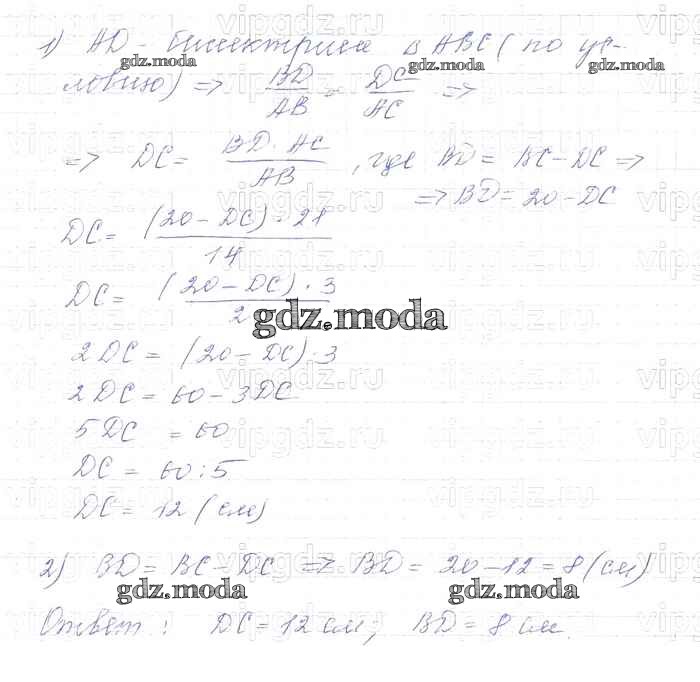 1) AD - биссектриса Δ ABC (по ус-
ловию) => BD/AB = DC/AC =>
=> DC = BD · AC / AB, где BD = BC - DC =>
=> BD = 20 - DC
DC = (20 - DC) · 21 / 14
DC = (20 - DC) · 3 / 2
2DC = (20 - DC) · 3
2DC = 60 - 3DC
5DC = 60
DC = 60 : 5
DC = 12 (см)
2) BD = BC - DC => BD = 20 - 12 = 8 (см)
Ответ: DC = 12 см; BD = 8 см.
gdz.moda
vipgdz.ru